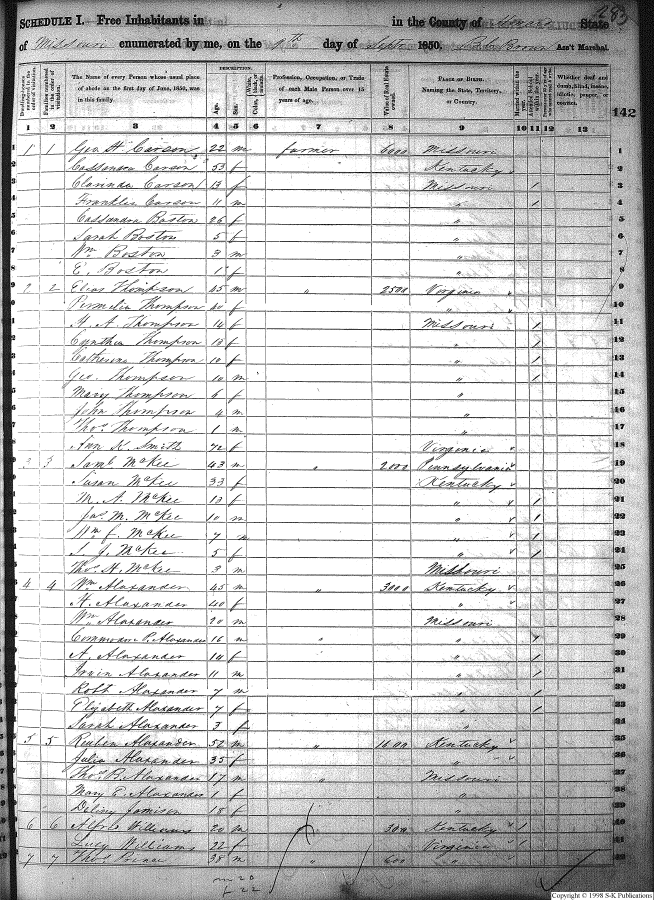 283
SCHEDULE I. Free Inhabitants in in the County of State
of Missouri enumerated by me, on the 9th day of Sept 1850. Ass't Marshal.
DESCRIPTION.
Dwelling-houses numbered in the order of visitation.
Families numbered in the order of visitation.
The Name of every Person whose usual place of abode on the first day of June, 1850, was in this family.
Age.
Sex.
Color, White, black, or mulatto.
Profession, Occupation, or Trade of each Male Person over 15 years of age.
Value of Real Estate owned.
PLACE OF BIRTH. Naming the State, Territory, or Country.
Married within the year.
Attended School within the year.
Whether deaf and dumb, blind, insane, idiotic, pauper, or convict.
142
1 2 3 4 5 6 7 8 9 10 11 12 13
1 1 1 Geo H. Carson 22 m farmer 6000 Missouri 1
2 Cassandra Carson 53 f Kentucky 2
3 Clarinda Carson 13 f Missouri 1 3
4 Franklin Carson 11 m " 1 4
5 Cassandra Boston 26 f " 5
6 Sarah Boston 5 f " 6
7 Wm Boston 3 m " 7
8 E. Boston 1 f " 8
9 2 2 Elias Thompson 45 m " 2500 Virginia 9
10 Permelia Thompson 40 f " 10
11 H. A. Thompson 14 f Missouri 1 11
12 Cynthia Thompson 13 f " 1 12
13 Catherine Thompson 10 f " 1 13
14 Geo. Thompson 10 m " 1 14
15 Mary Thompson 6 f " 15
16 John Thompson 4 m " 16
17 Thos. Thompson 1 m " 17
18 Ann K. Smith 72 f Virginia 18
19 3 3 Saml. McKee 43 m " 2000 Pennsylvania 19
20 Susan McKee 33 f Kentucky 20
21 M. A. McKee 13 f " 1 21
22 Jas. M. McKee 10 m " 1 22
23 Wm J. McKee 7 m " 1 23
24 S. J. McKee 5 f " 1 24
25 Thos. H. McKee 3 m Missouri 25
26 4 4 Wm Alexander 45 m " 3000 Kentucky 26
27 H. Alexander 40 f " 27
28 Wm Alexander 20 m Missouri 28
29 Commodore P. Alexander 16 m " " 1 29
30 A. Alexander 14 f " 1 30
31 Irvin Alexander 11 m " 1 31
32 Robt Alexander 7 m " 1 32
33 Elizabeth Alexander 7 f " 1 33
34 Sarah Alexander 3 f " 34
35 5 5 Reuben Alexander 52 m " 1600 Kentucky 35
36 Julia Alexander 35 f " 36
37 Thos. R. Alexander 17 m " Missouri 37
38 Mary E. Alexander 1 f " 38
39 Jamison 18 f " 39
40 6 6 Alfred Williams 20 m 300 Kentucky 1 40
41 Lucy Williams 22 f Virginia 1 41
42 7 7 Thos Prince 38 m " 600 " 42
m 20
f 22
Copyright © 1998 S-K Publications